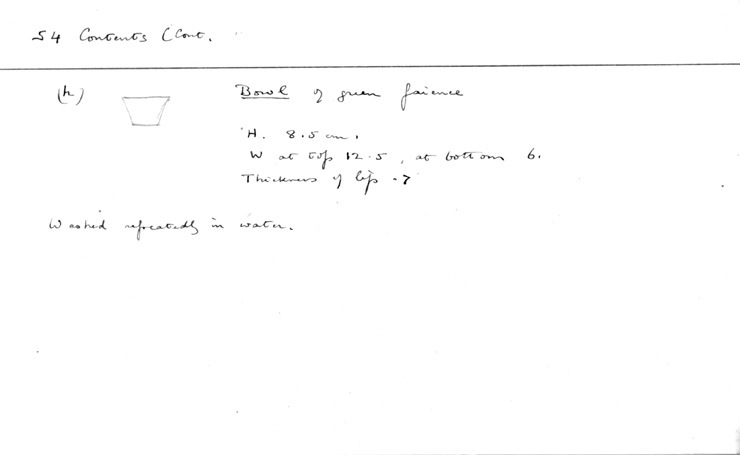 54 Contents (Cont.
(h)
Bowl of green faience
H. 8.5 cm.
W at top 12.5, at bottom 6.
Thickness of lip .7
Washed repeatedly in water.